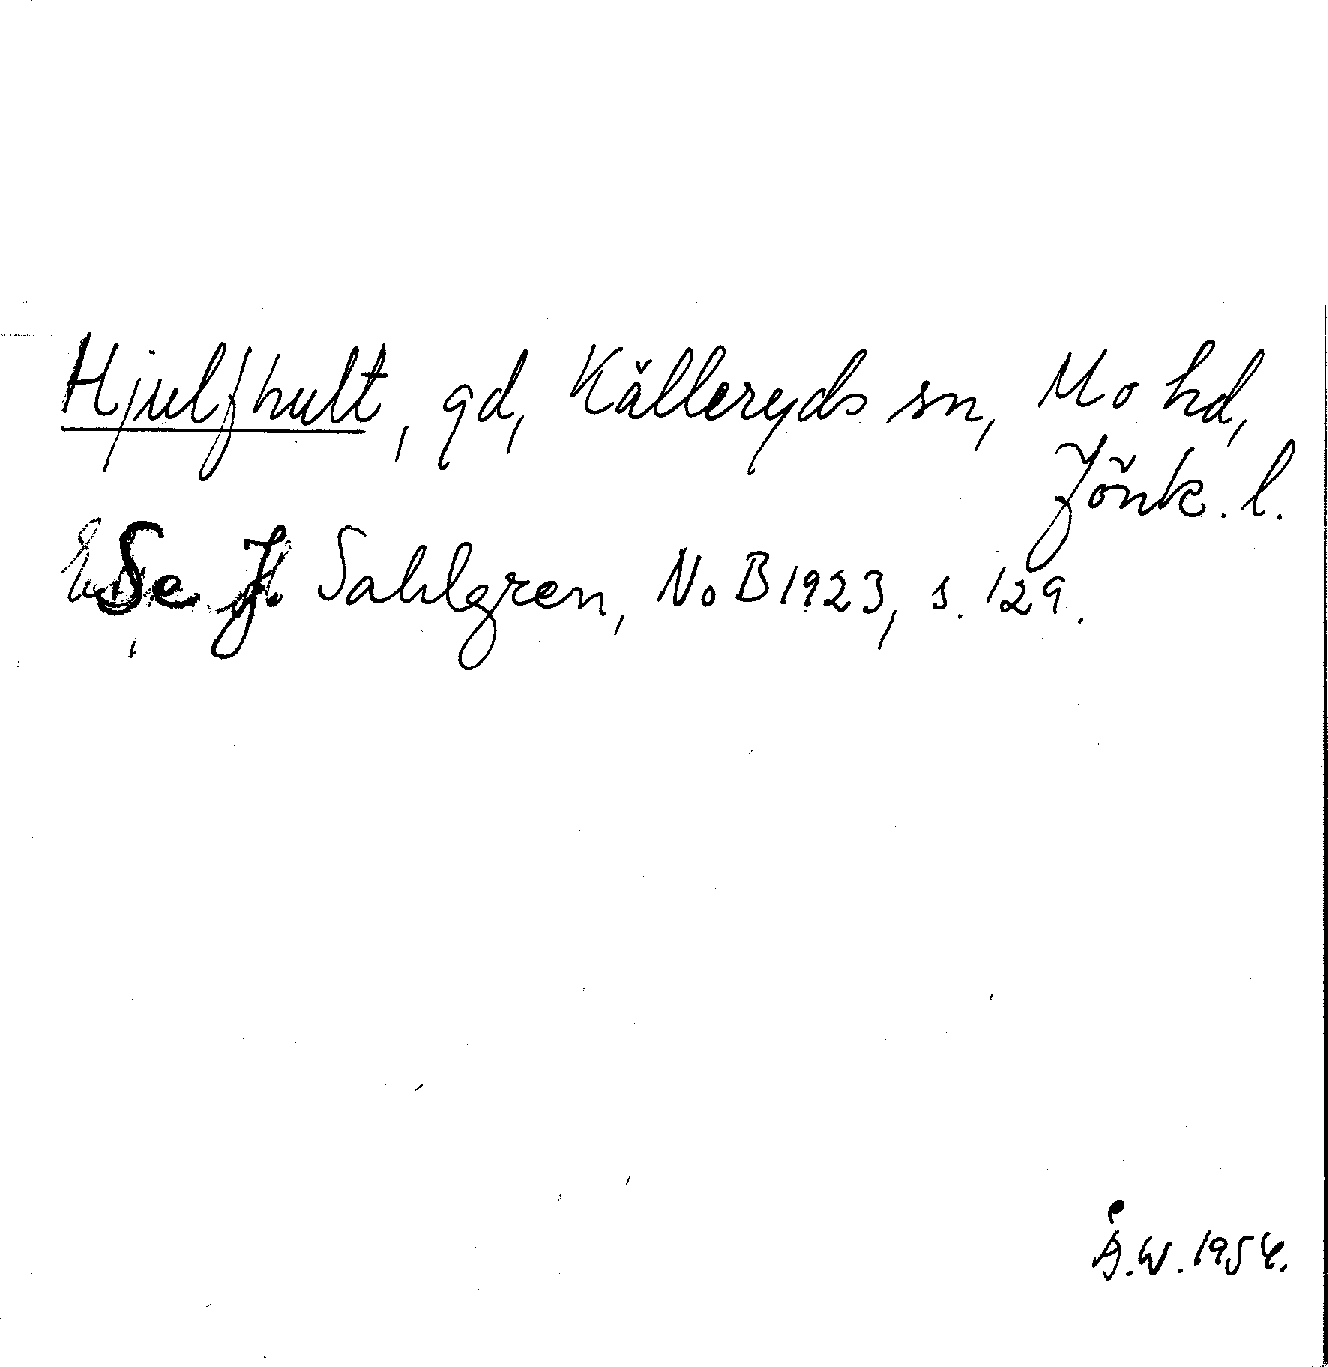 Hjulfhult, gd, Källeryds sn, Mo hd,
Jönk. l.
Se J Sahlgren, NoB 1923, s. 129.
Å.W. 1954.